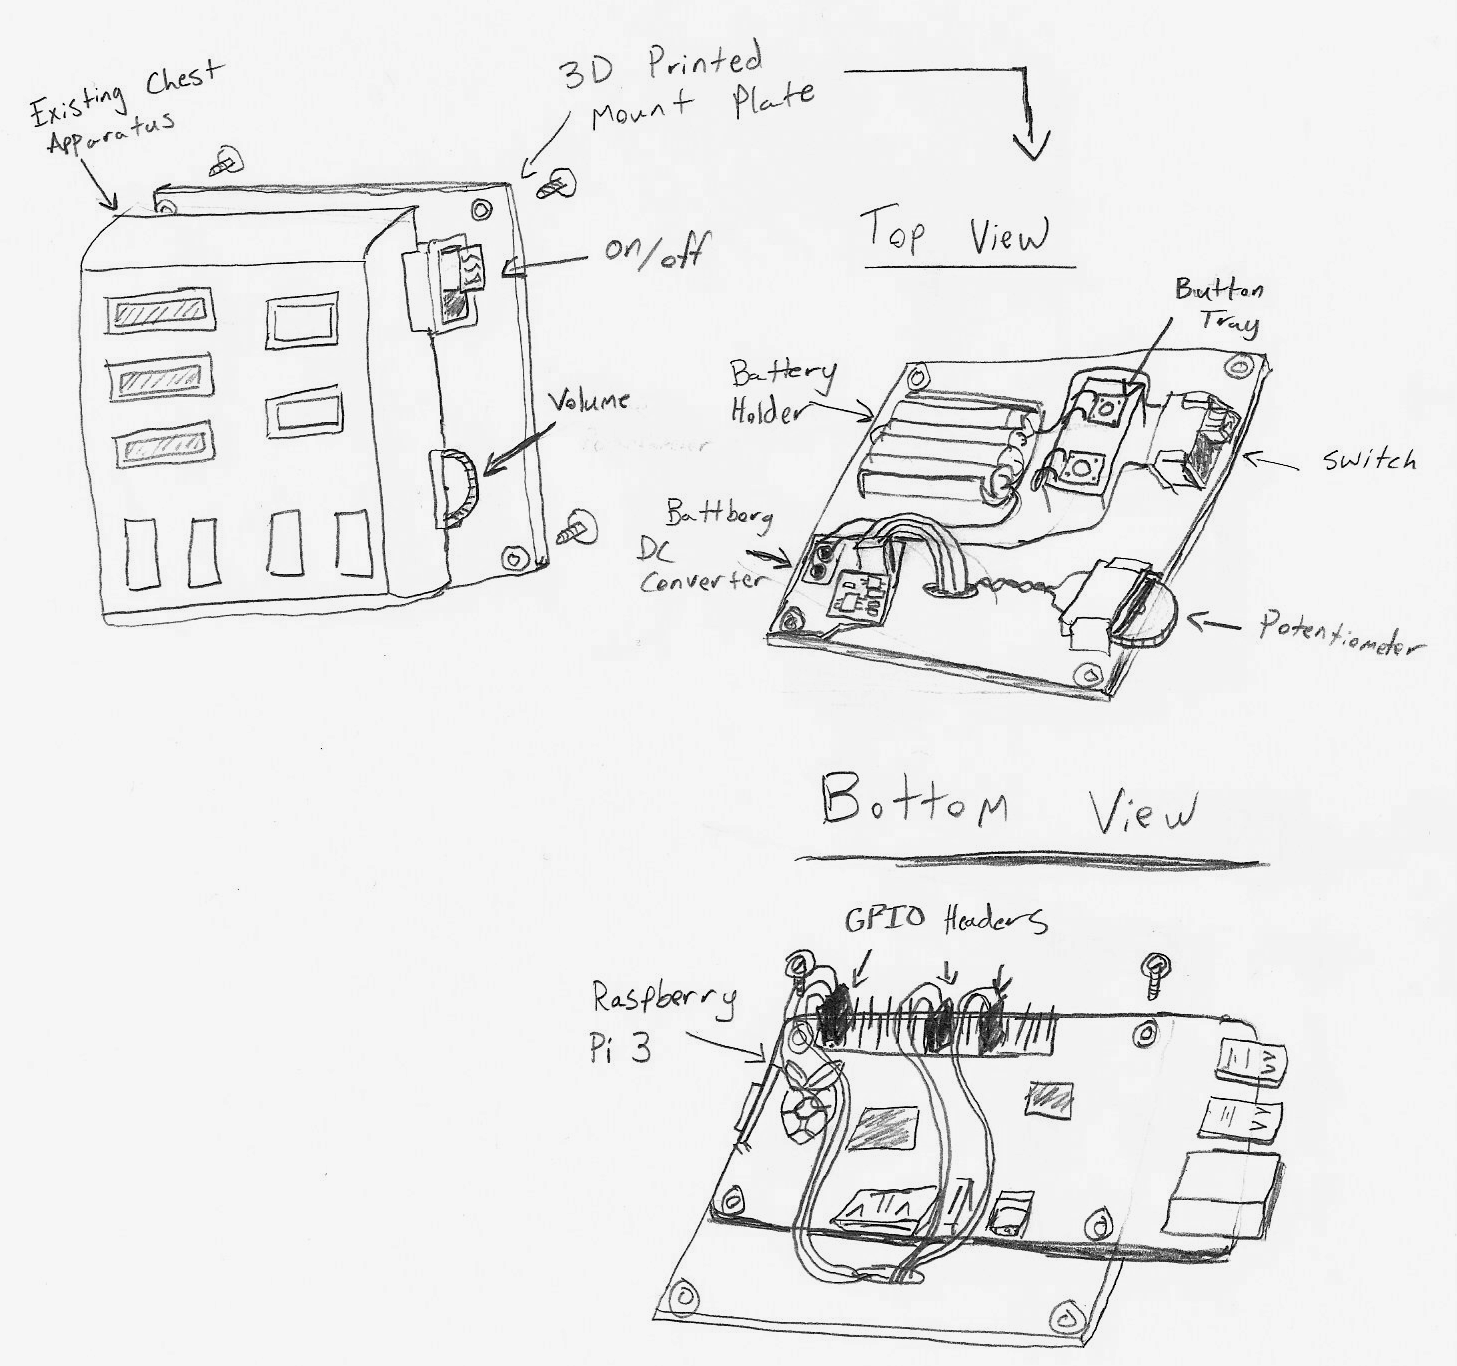 Existing Chest
Apparatus
3D Printed
Mount Plate
on/off
Volume
Top View
Button
Tray
Battery
Holder
Switch
Battborg
DC
Converter
Potentiometer
Bottom View
GPIO Headers
Raspberry
Pi 3